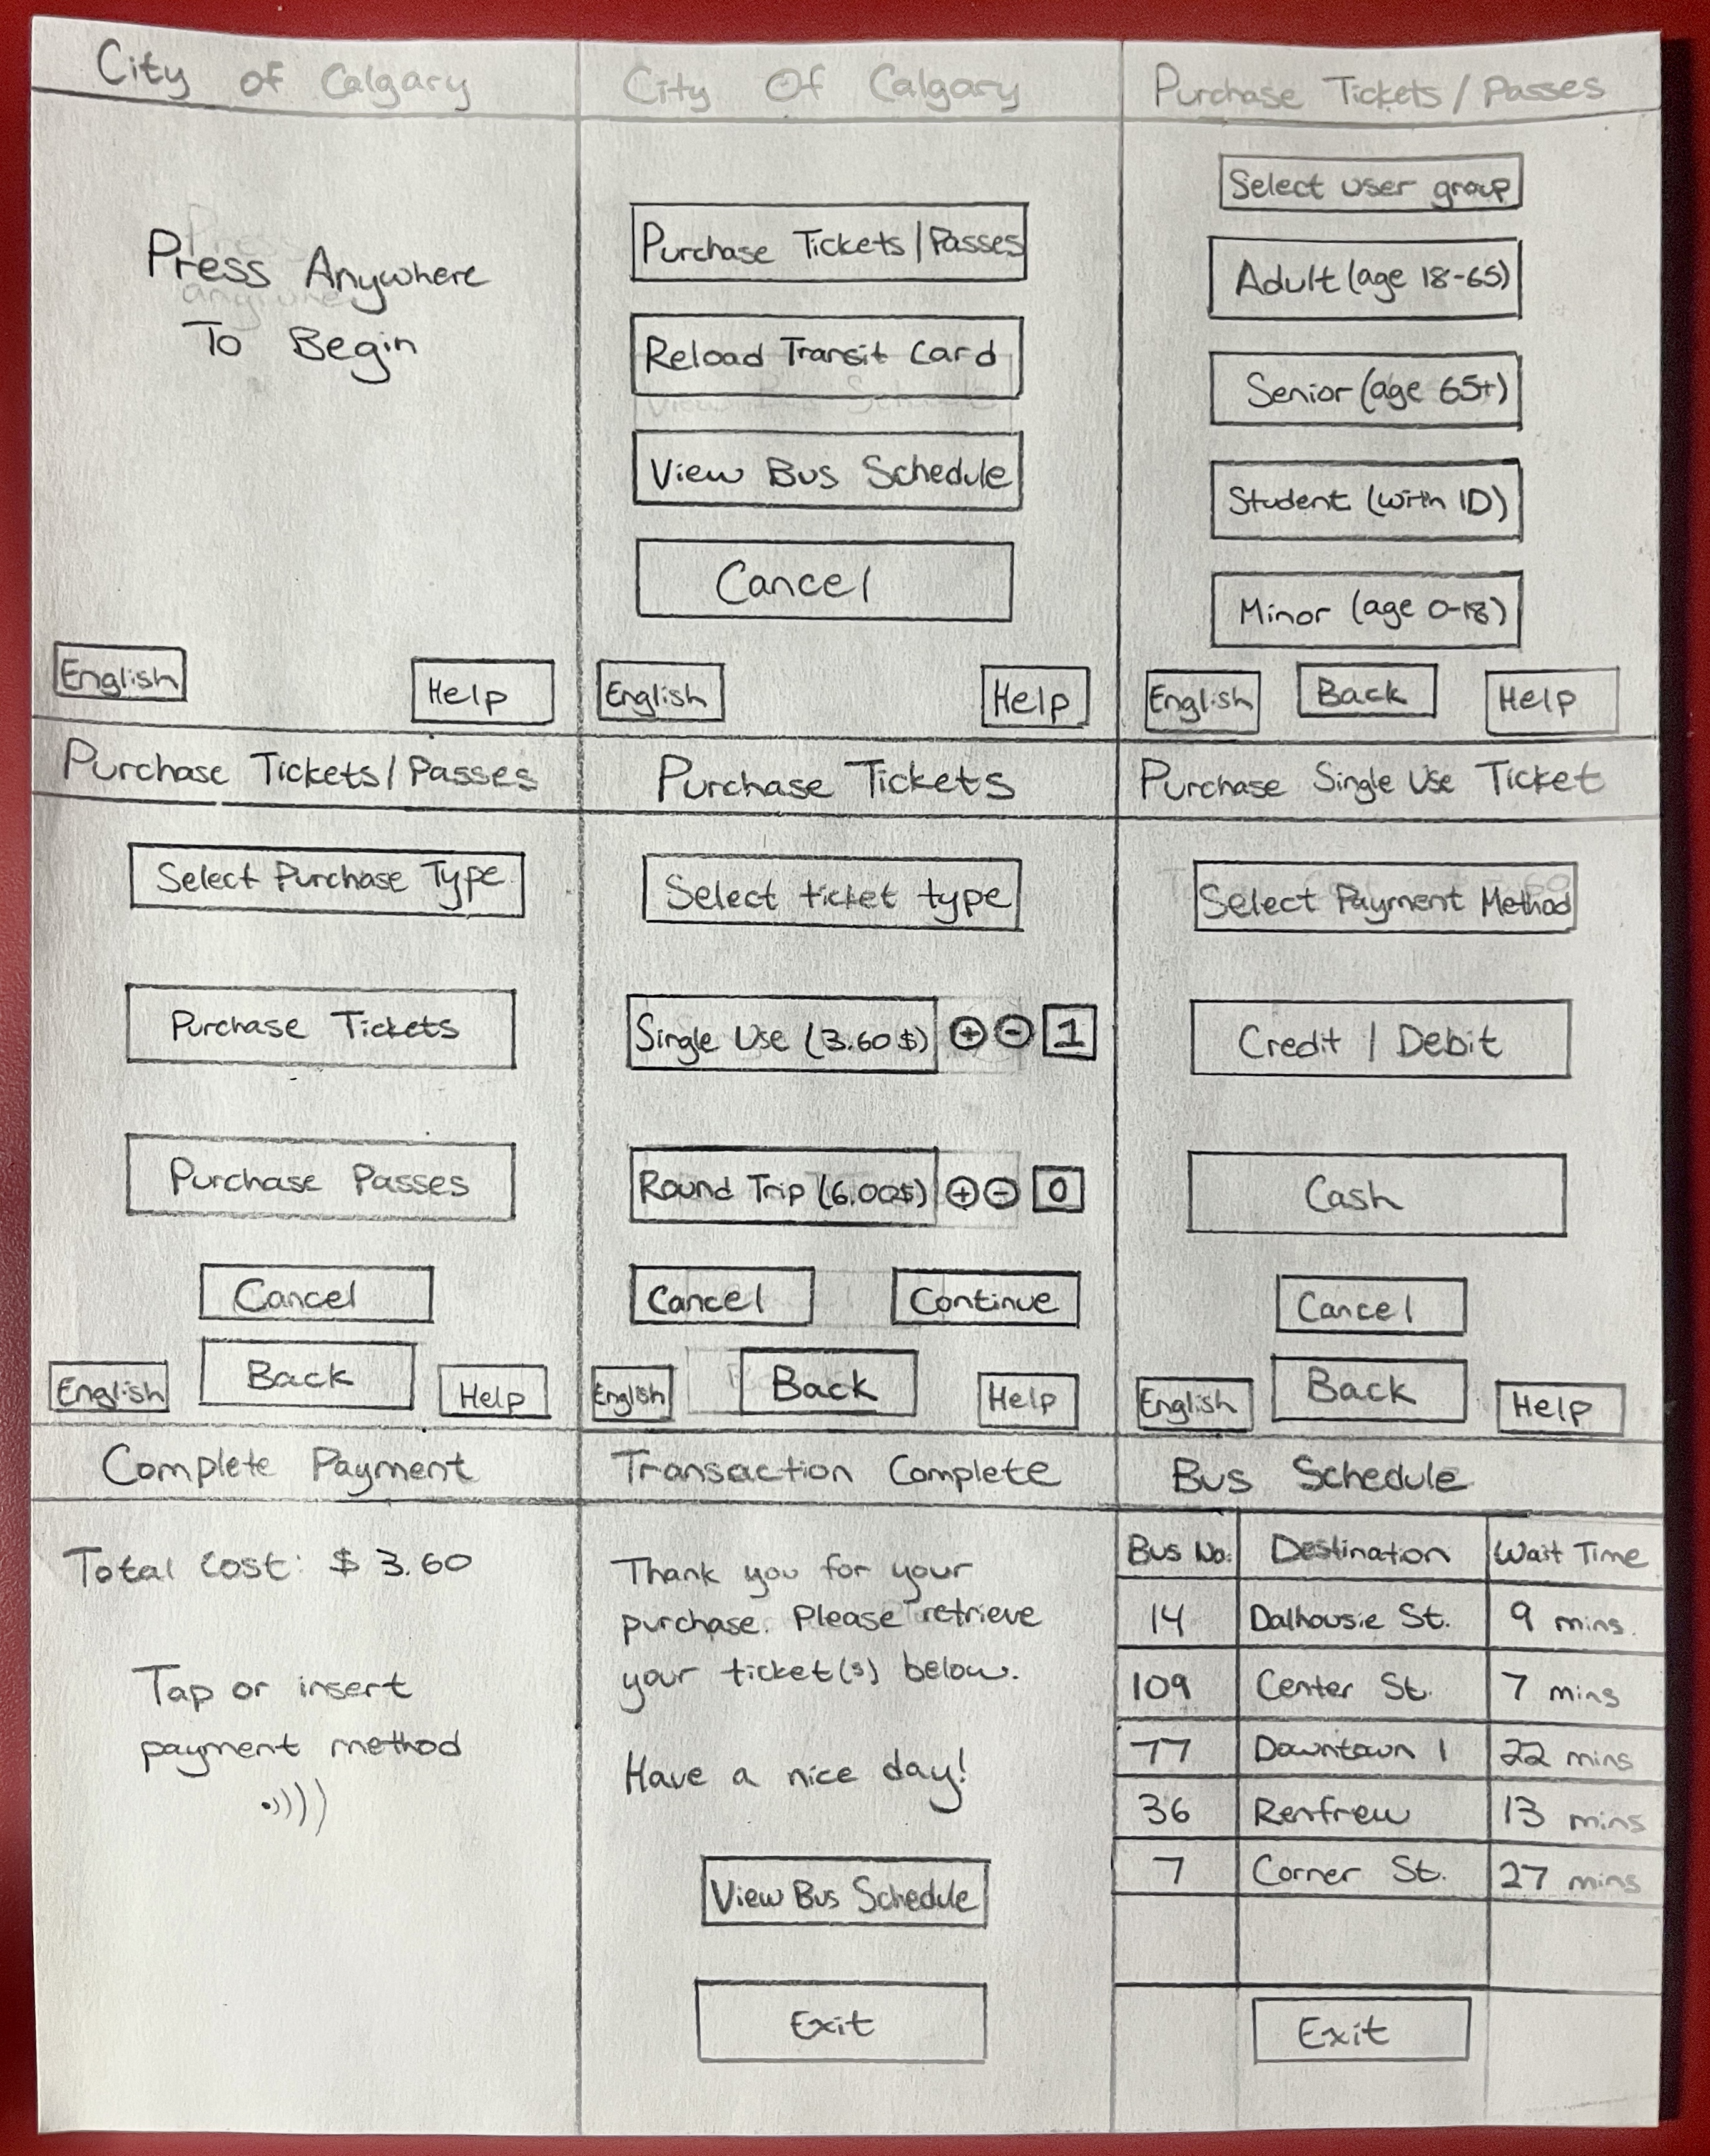 City of Calgary
Press Anywhere
To Begin
English
Help
City Of Calgary
Purchase Tickets / Passes
Reload Transit Card
View Bus Schedule
Cancel
English
Help
Purchase Tickets / Passes
Select user group
Adult (age 18-65)
Senior (age 65+)
Student (with ID)
Minor (age 0-18)
English
Back
Help
Purchase Tickets / Passes
Select Purchase Type
Purchase Tickets
Purchase Passes
Cancel
English
Back
Help
Purchase Tickets
Select ticket type
Single Use (3.60$) + - 1
Round Trip (6.00$) + - 0
Cancel
Continue
English
Back
Help
Purchase Single Use Ticket
Select Payment Method
Credit / Debit
Cash
Cancel
English
Back
Help
Complete Payment
Total Cost: $ 3.60
Tap or insert
payment method
Transaction Complete
Thank you for your
purchase. Please retrieve
your ticket(s) below.
Have a nice day!
View Bus Schedule
Exit
Bus Schedule
Bus No. Destination Wait Time
14 Dalhousie St. 9 mins.
109 Center St. 7 mins
77 Downtown 1 22 mins
36 Renfrew 13 mins
7 Corner St. 27 mins
Exit